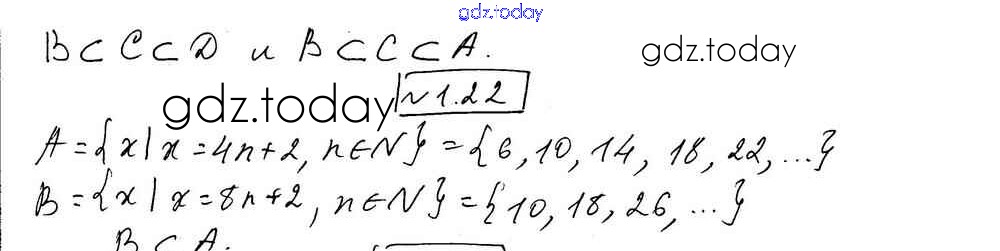 gdz.today
B⊂C⊂D и B⊂C⊂A.
gdz.today
gdz.today
№1.22
A={x|x=4n+2, n∈N}={6,10,14,18,22,...}
B={x|x=8n+2, n∈N}={10,18,26,...}
B⊂A.